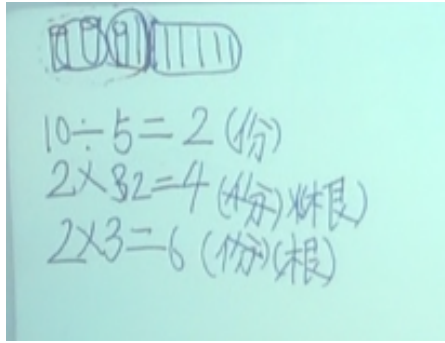 10÷5=2(份)
2×2=4(根)
2×3=6(根)